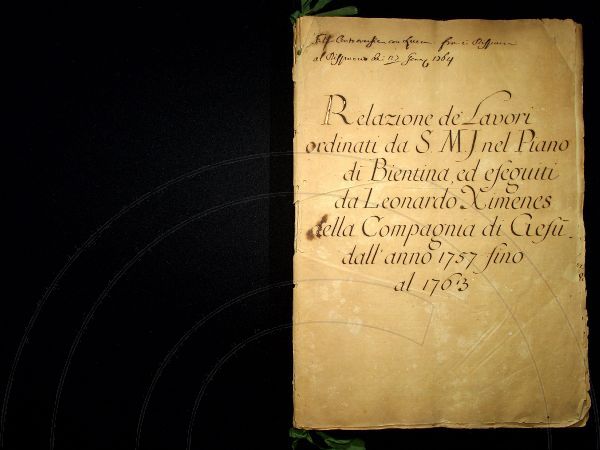 al 1764
Relazione de' Lavori
ordinati da S. M. J nel Piano
di Bientina, ed eseguiti
da Leonardo Ximenes
della Compagnia di Gesù
dall'anno 1757 fino
al 1763